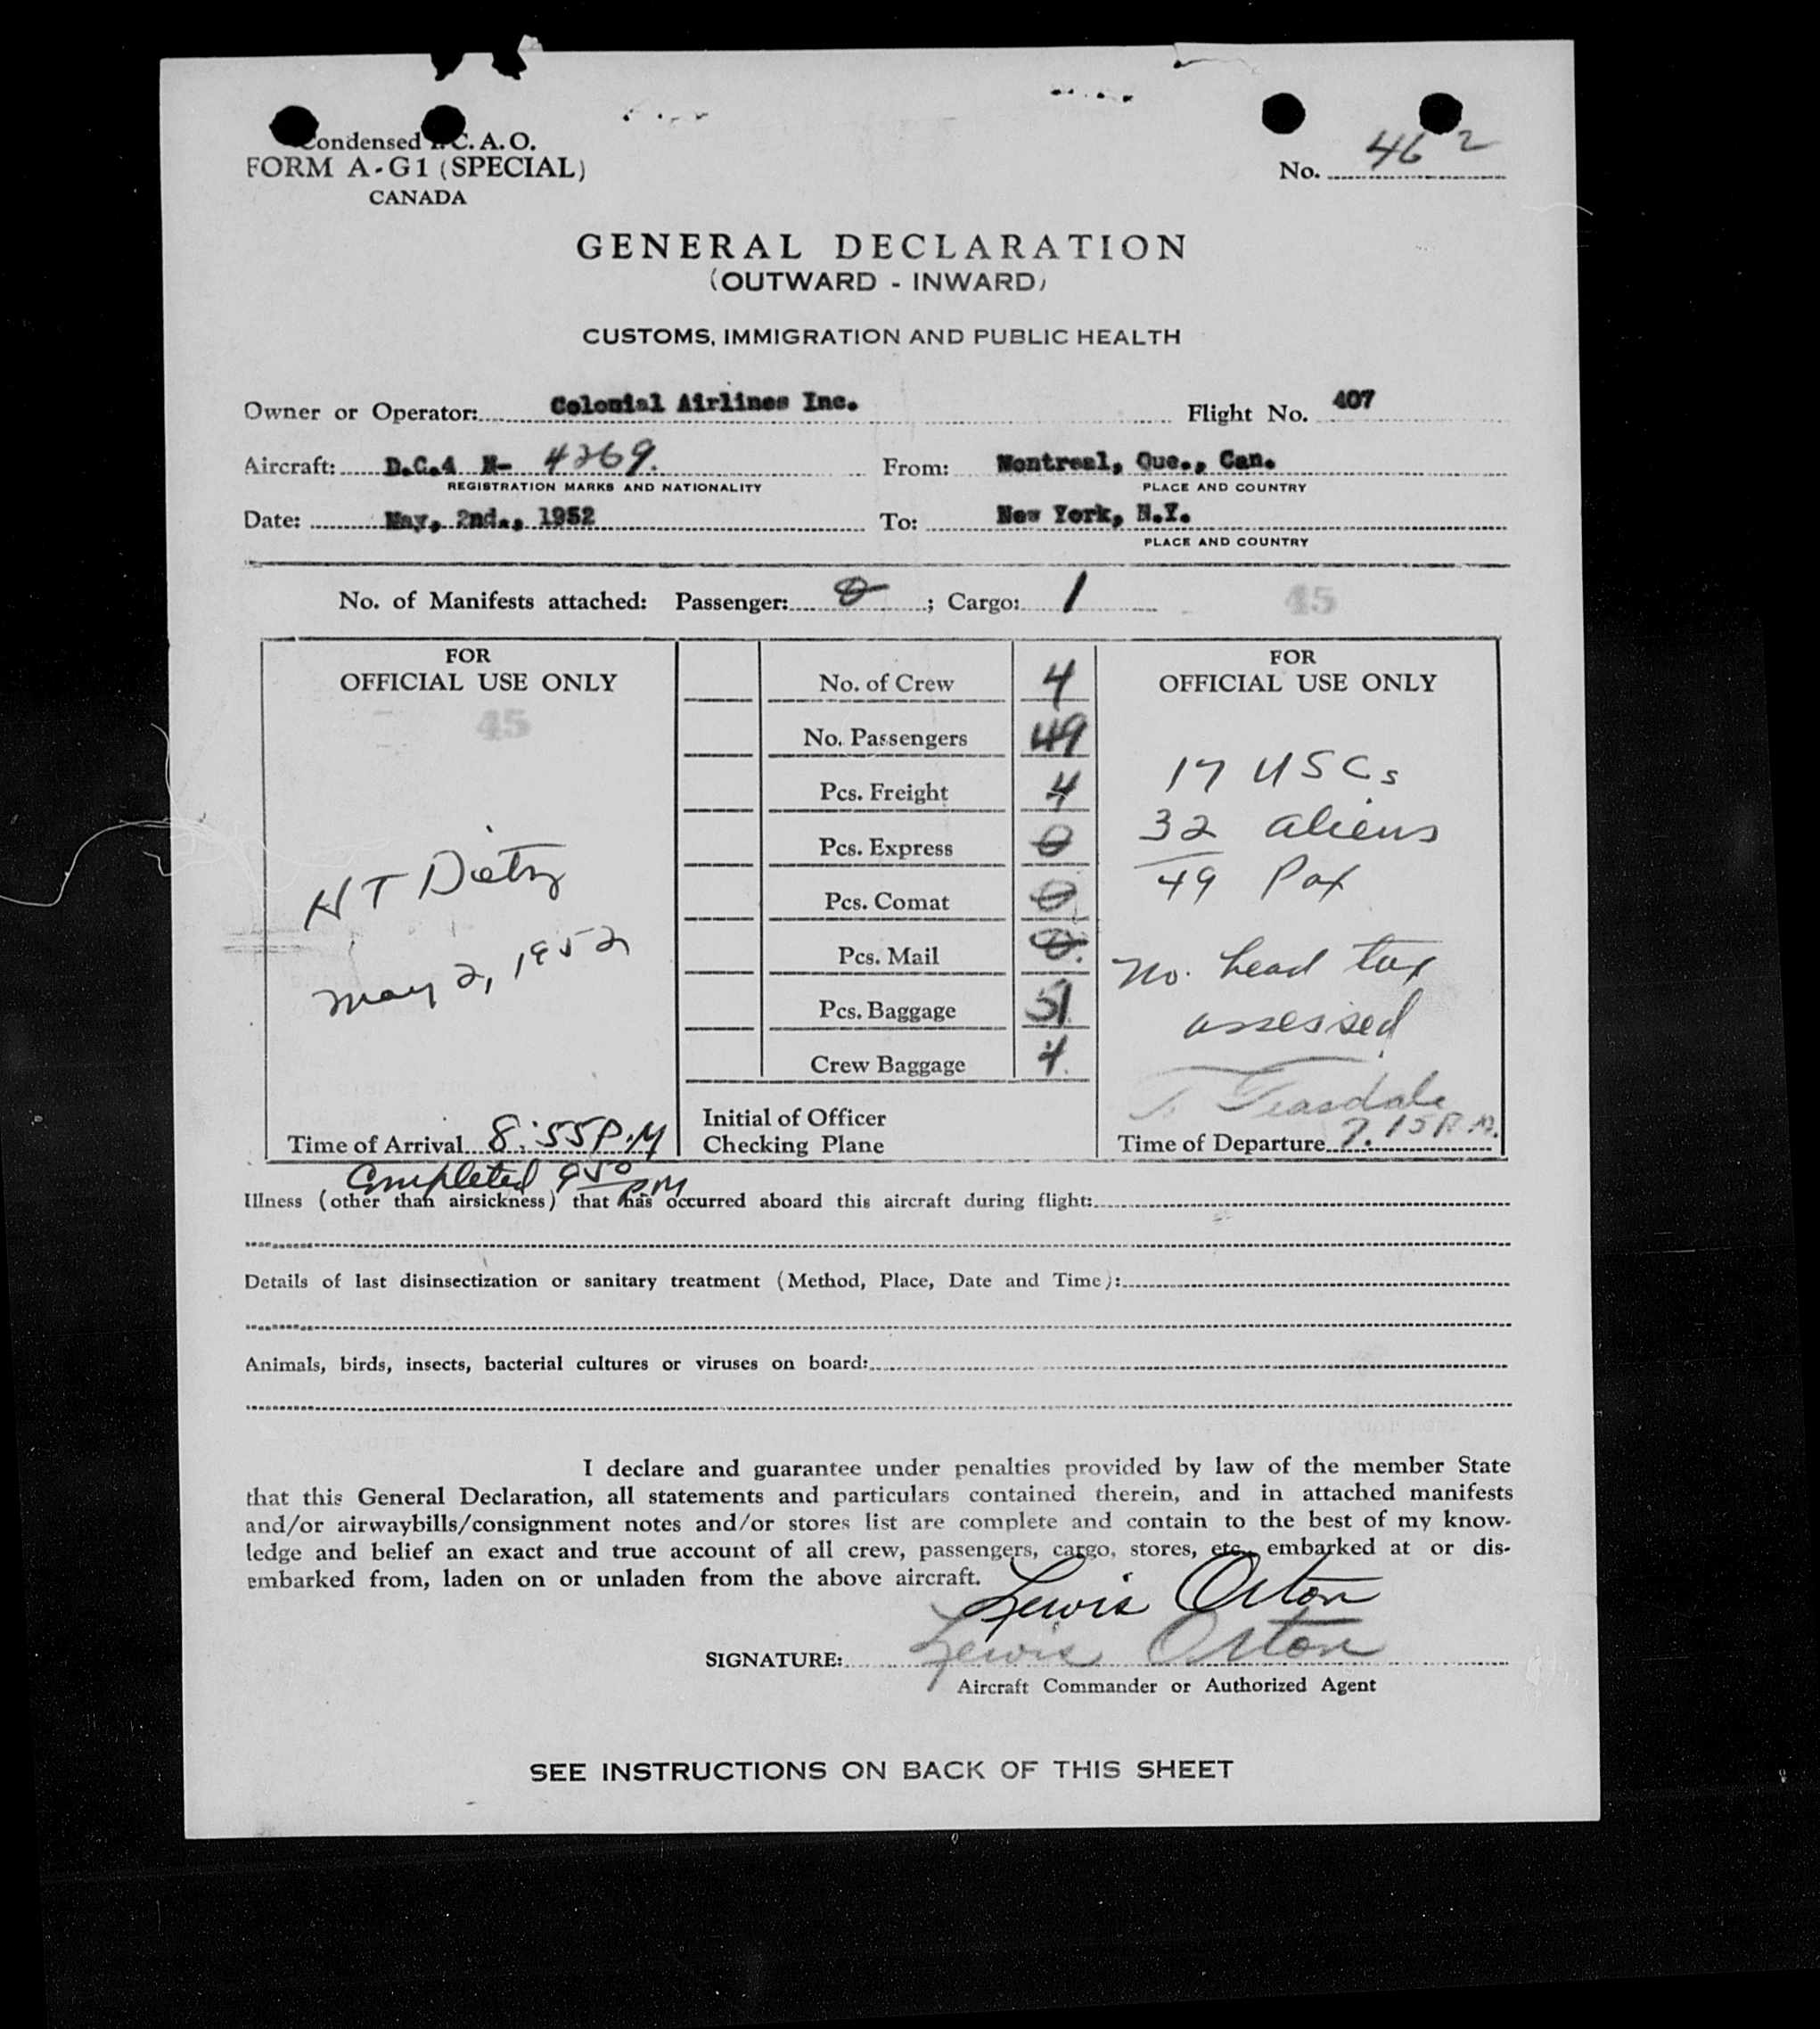 Condensed I.C.A.O.
FORM A-G1 (SPECIAL)
CANADA
No. 462
GENERAL DECLARATION
(OUTWARD - INWARD)
CUSTOMS, IMMIGRATION AND PUBLIC HEALTH
Owner or Operator: Colonial Airlines Inc. Flight No. 407
Aircraft: D.C.4 N- 4269. From: Montreal, Que., Can.
REGISTRATION MARKS AND NATIONALITY PLACE AND COUNTRY
Date: May, 2nd., 1952 To: New York, N.Y.
PLACE AND COUNTRY
No. of Manifests attached: Passenger: 0; Cargo: 1 45
FOR
OFFICIAL USE ONLY
45
H T Dietz
May 2, 1952
Time of Arrival 8:55 P.M
Completed 950 PM
No. of Crew 4
No. Passengers 49
Pcs. Freight 4
Pcs. Express 0
Pcs. Comat 0
Pcs. Mail 0.
Pcs. Baggage 51
Crew Baggage 4.
Initial of Officer
Checking Plane
FOR
OFFICIAL USE ONLY
17 USCs
32 aliens
49 Pax
No. head tax
assessed
Teasdale
Time of Departure 7.15 P.M.
Illness (other than airsickness) that has occurred aboard this aircraft during flight:
Details of last disinsectization or sanitary treatment (Method, Place, Date and Time):
Animals, birds, insects, bacterial cultures or viruses on board:
I declare and guarantee under penalties provided by law of the member State
that this General Declaration, all statements and particulars contained therein, and in attached manifests
and/or airwaybills/consignment notes and/or stores list are complete and contain to the best of my know-
ledge and belief an exact and true account of all crew, passengers, cargo, stores, etc., embarked at or dis-
embarked from, laden on or unladen from the above aircraft.
Lewis Orton
SIGNATURE: Lewis Orton
Aircraft Commander or Authorized Agent
SEE INSTRUCTIONS ON BACK OF THIS SHEET